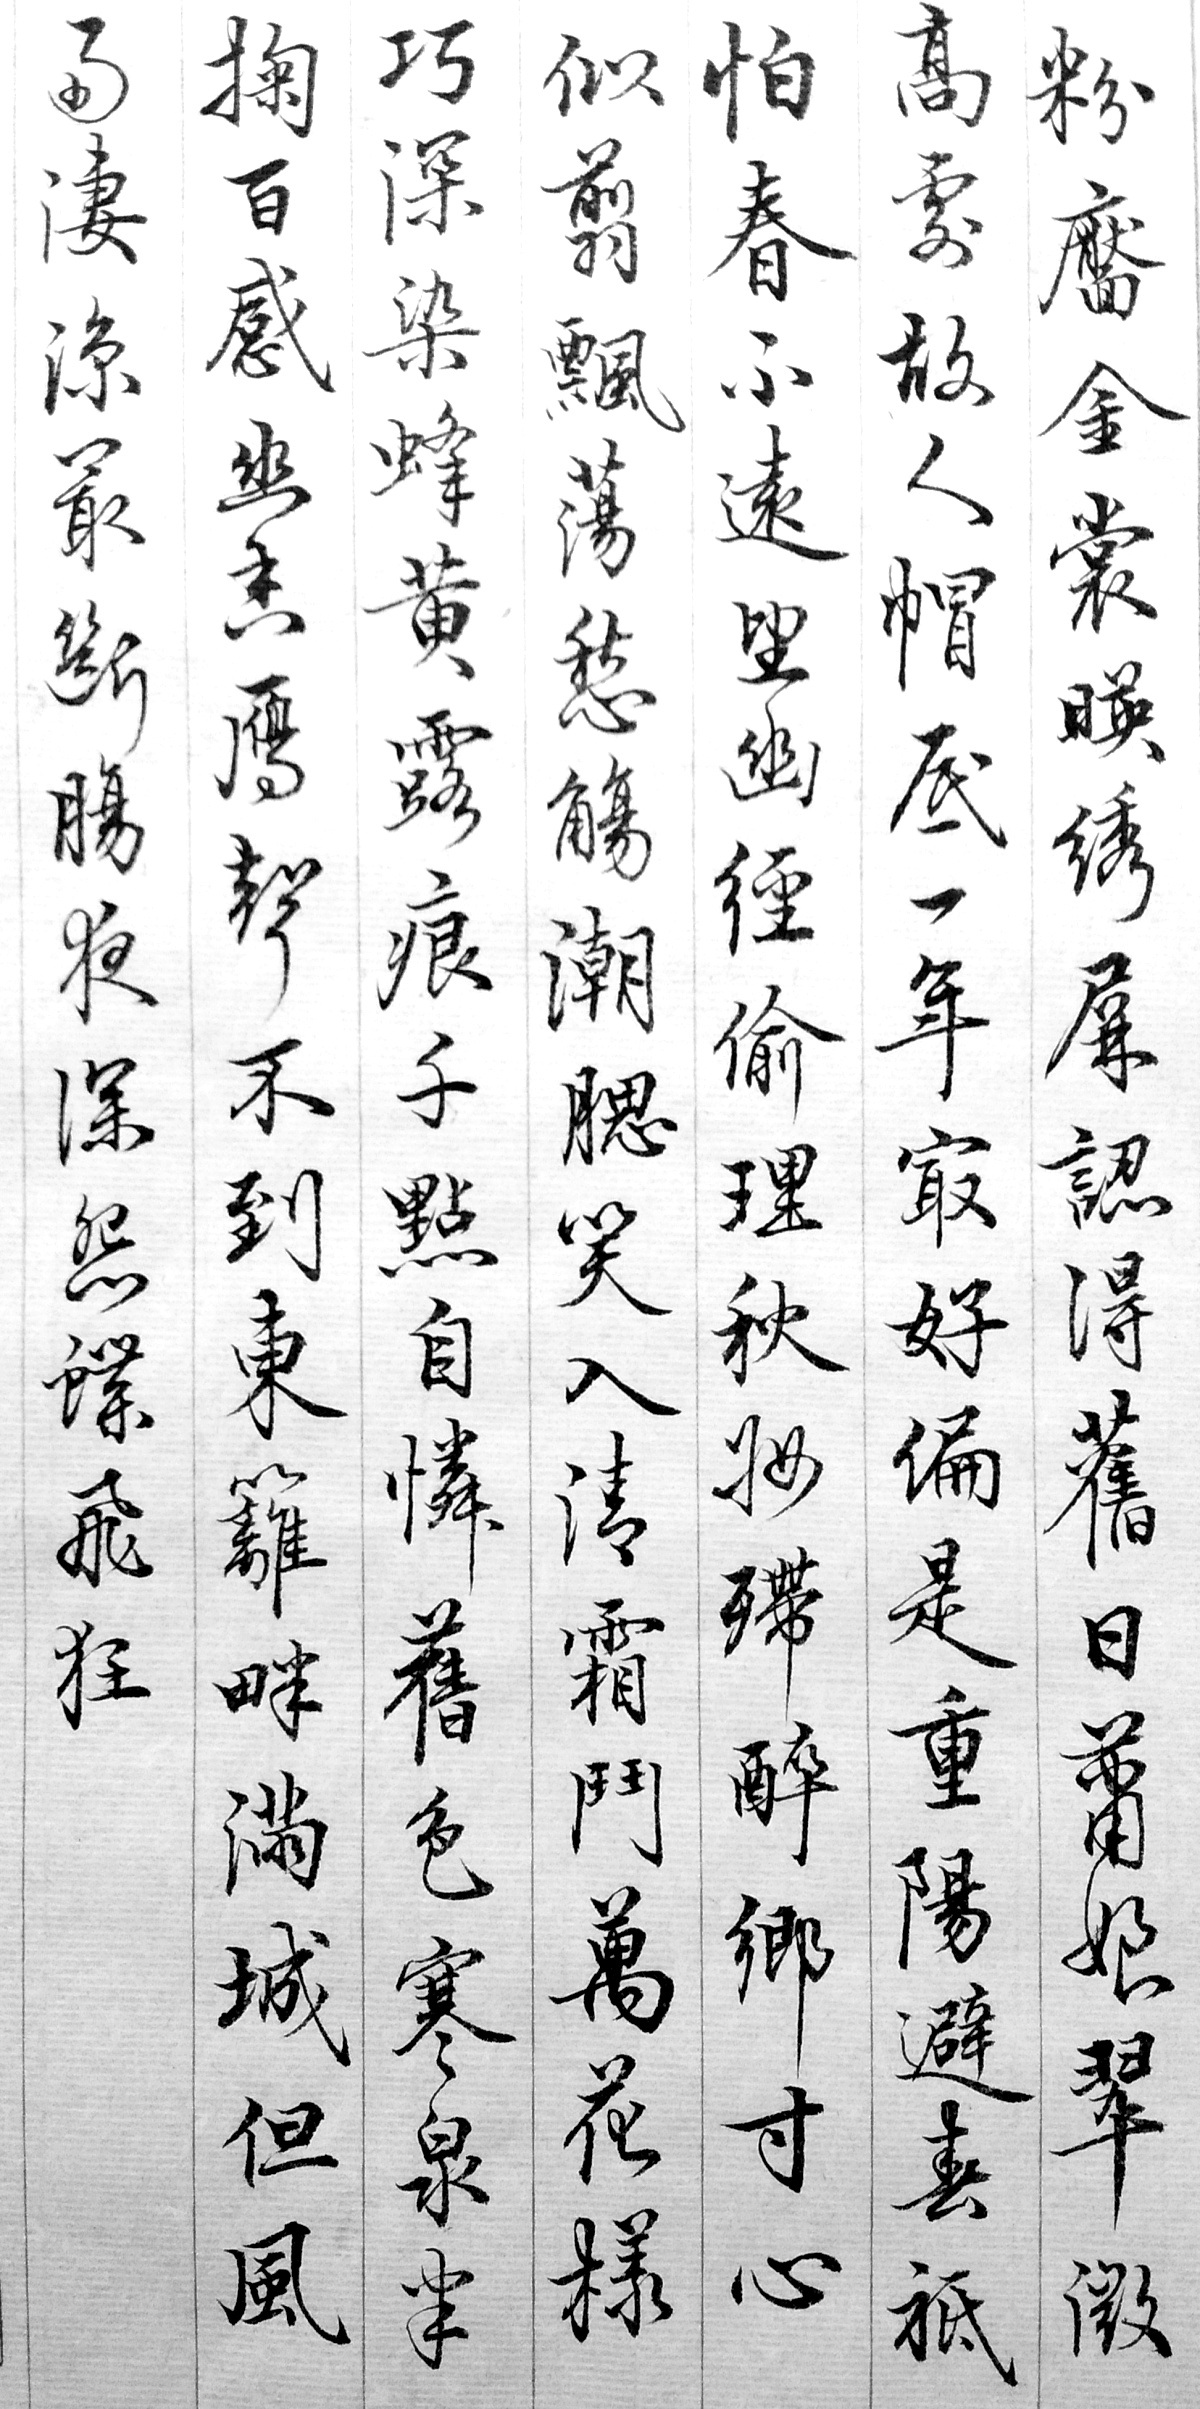 粉靨金裳暎綉屏認得舊日蕭娘翠微
高處故人帽底一年最好偏是重陽避春祗
怕春不遠望幽徑偷理秋妝殢醉鄉寸心
似翦飄蕩愁觴潮腮笑入清霜鬥萬花樣
巧深染蜂黄露痕千點自憐舊色寒泉半
掬百感幽香雁聲不到東籬畔滿城但風
雨淒涼最斷腸夜深怨蝶飛狂